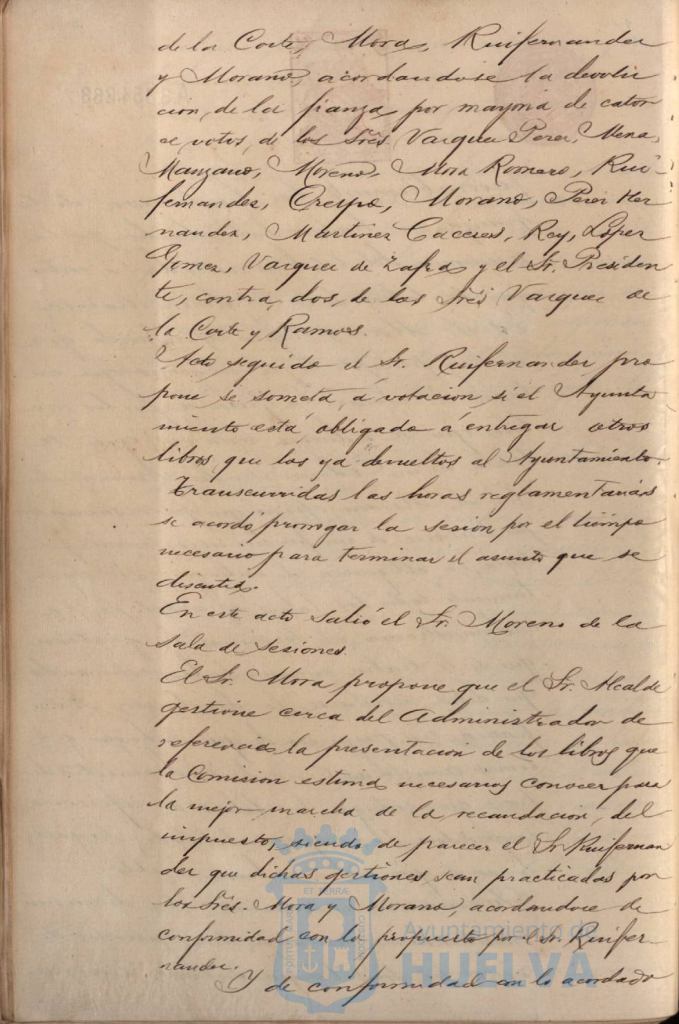 de la Corte, Mora, Ruifernandez
y Morano, acordandose la devolu
cion de la fianza por mayoria de cator
ce votos, de los Sres Vazquez Perez, Mena,
Manzano, Moreno, Mora Romero, Rui-
fernandez, Crespo, Morano, Perez Her
nandez, Martinez Caceres, Rey, Lopez
Gomez, Vazquez de Zafra y el Sr. Presiden
te, contra dos, de los Sres Vazquez de
la Corte y Ramos.
Acto seguido el Sr. Ruifernandez pro
pone se someta á votacion si el Ayunta
miento está obligado á entregar otros
libros que los ya devueltos al Ayuntamiento.
Transcurridas las horas reglamentarias
se acordó prorrogar la sesion por el tiempo
necesario para terminar el asunto que se
discutia.
En este acto salió el Sr. Moreno de la
sala de sesiones.
El Sr. Mora propone que el Sr. Alcalde
gestione cerca del Administrador de
referencia la presentacion de los libros que
la Comision estima necesarios conocer para
la mejor marcha de la recaudacion del
impuesto, siendo de parecer el Sr. Ruifernan
dez que dichas gestiones sean practicadas por
los Sres. Mora y Morano, acordandose de
conformidad con lo propuesto por el Sr. Ruifer-
nandez.
Y de conformidad con lo acordado
Ayuntamiento de
HUELVA